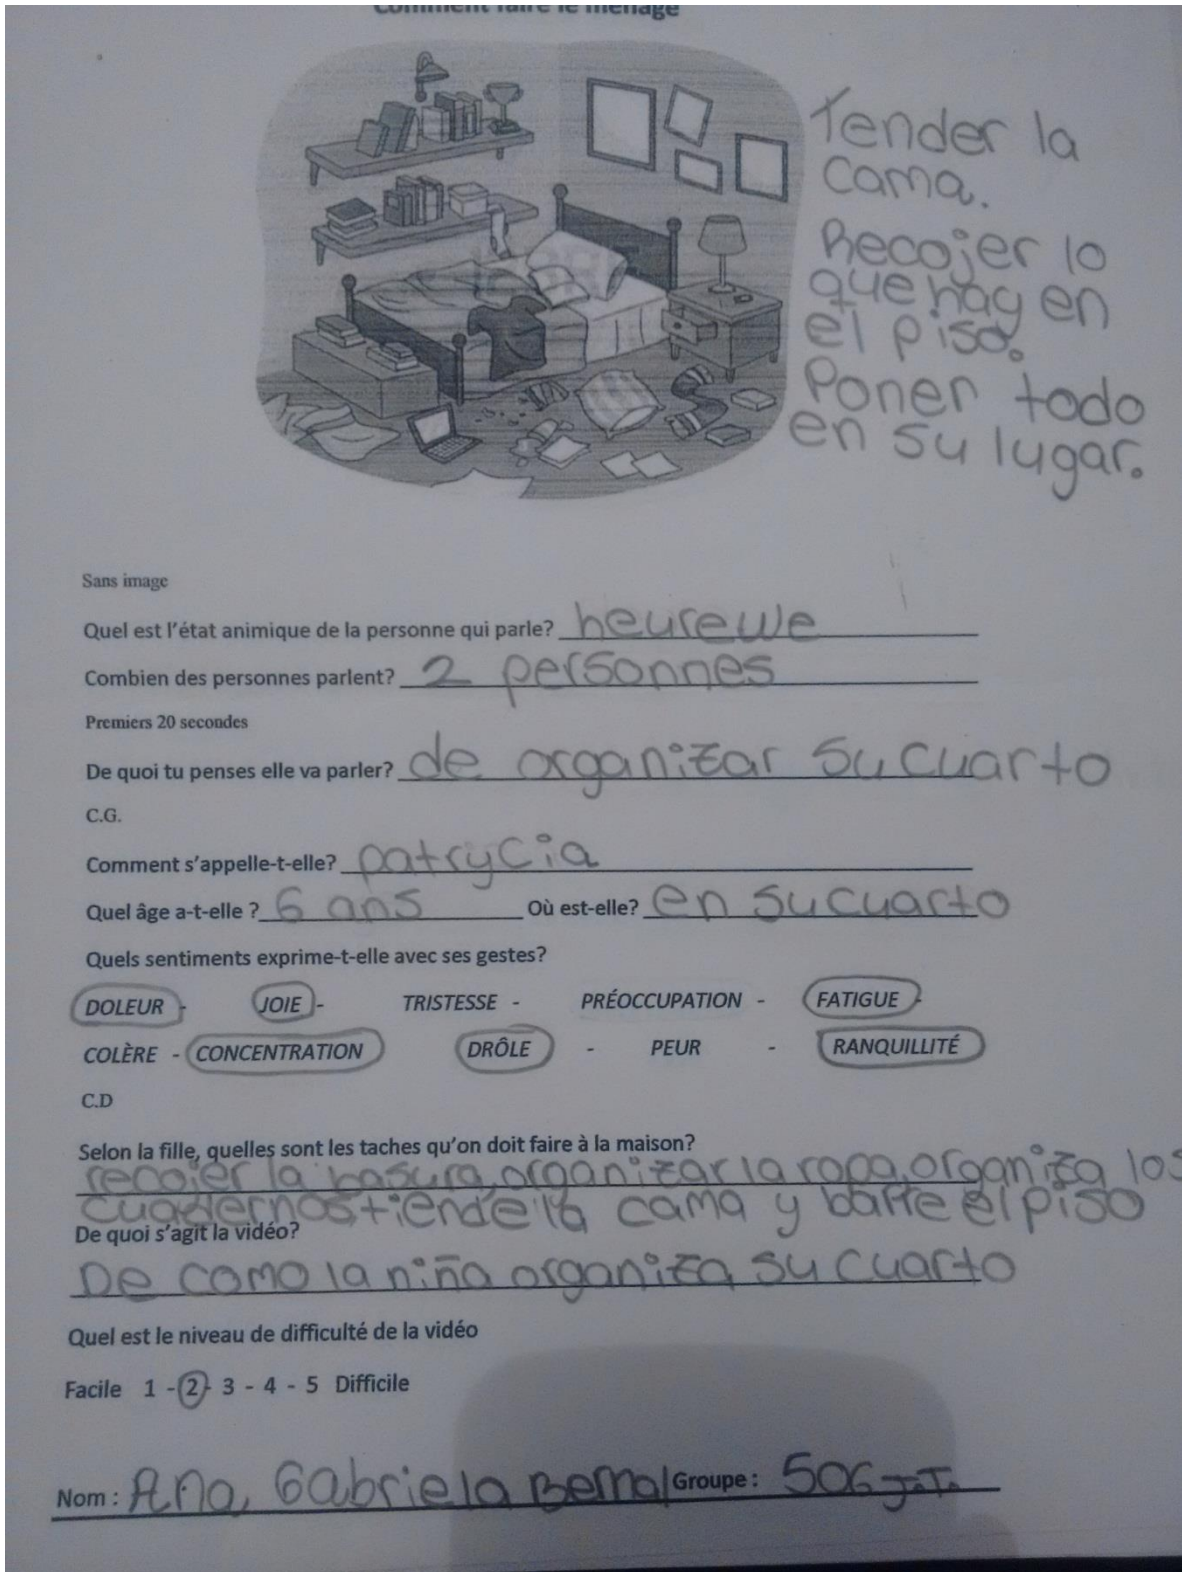 Comment faire le ménage
Tender la
cama.
Recojer lo
que hay en
el piso.
Poner todo
en su lugar.
Sans image
Quel est l'état animique de la personne qui parle? heurewe
Combien des personnes parlent? 2 personnes
Premiers 20 secondes
De quoi tu penses elle va parler? de organizar su cuarto
C.G.
Comment s'appelle-t-elle? patrycia
Quel âge a-t-elle ? 6 ans Où est-elle? en su cuarto
Quels sentiments exprime-t-elle avec ses gestes?
DOLEUR - JOIE - TRISTESSE - PRÉOCCUPATION - FATIGUE -
COLÈRE - CONCENTRATION DRÔLE - PEUR - RANQUILLITÉ
C.D
Selon la fille, quelles sont les taches qu'on doit faire à la maison?
recojer la basura, organizar la ropa, organiza los
cuadernos tiende la cama y barre el piso
De quoi s'agit la vidéo?
De como la niña organiza su cuarto
Quel est le niveau de difficulté de la vidéo
Facile 1 - 2 - 3 - 4 - 5 Difficile
Nom : Ana, Gabriela Bernal Groupe : 506 J.T.